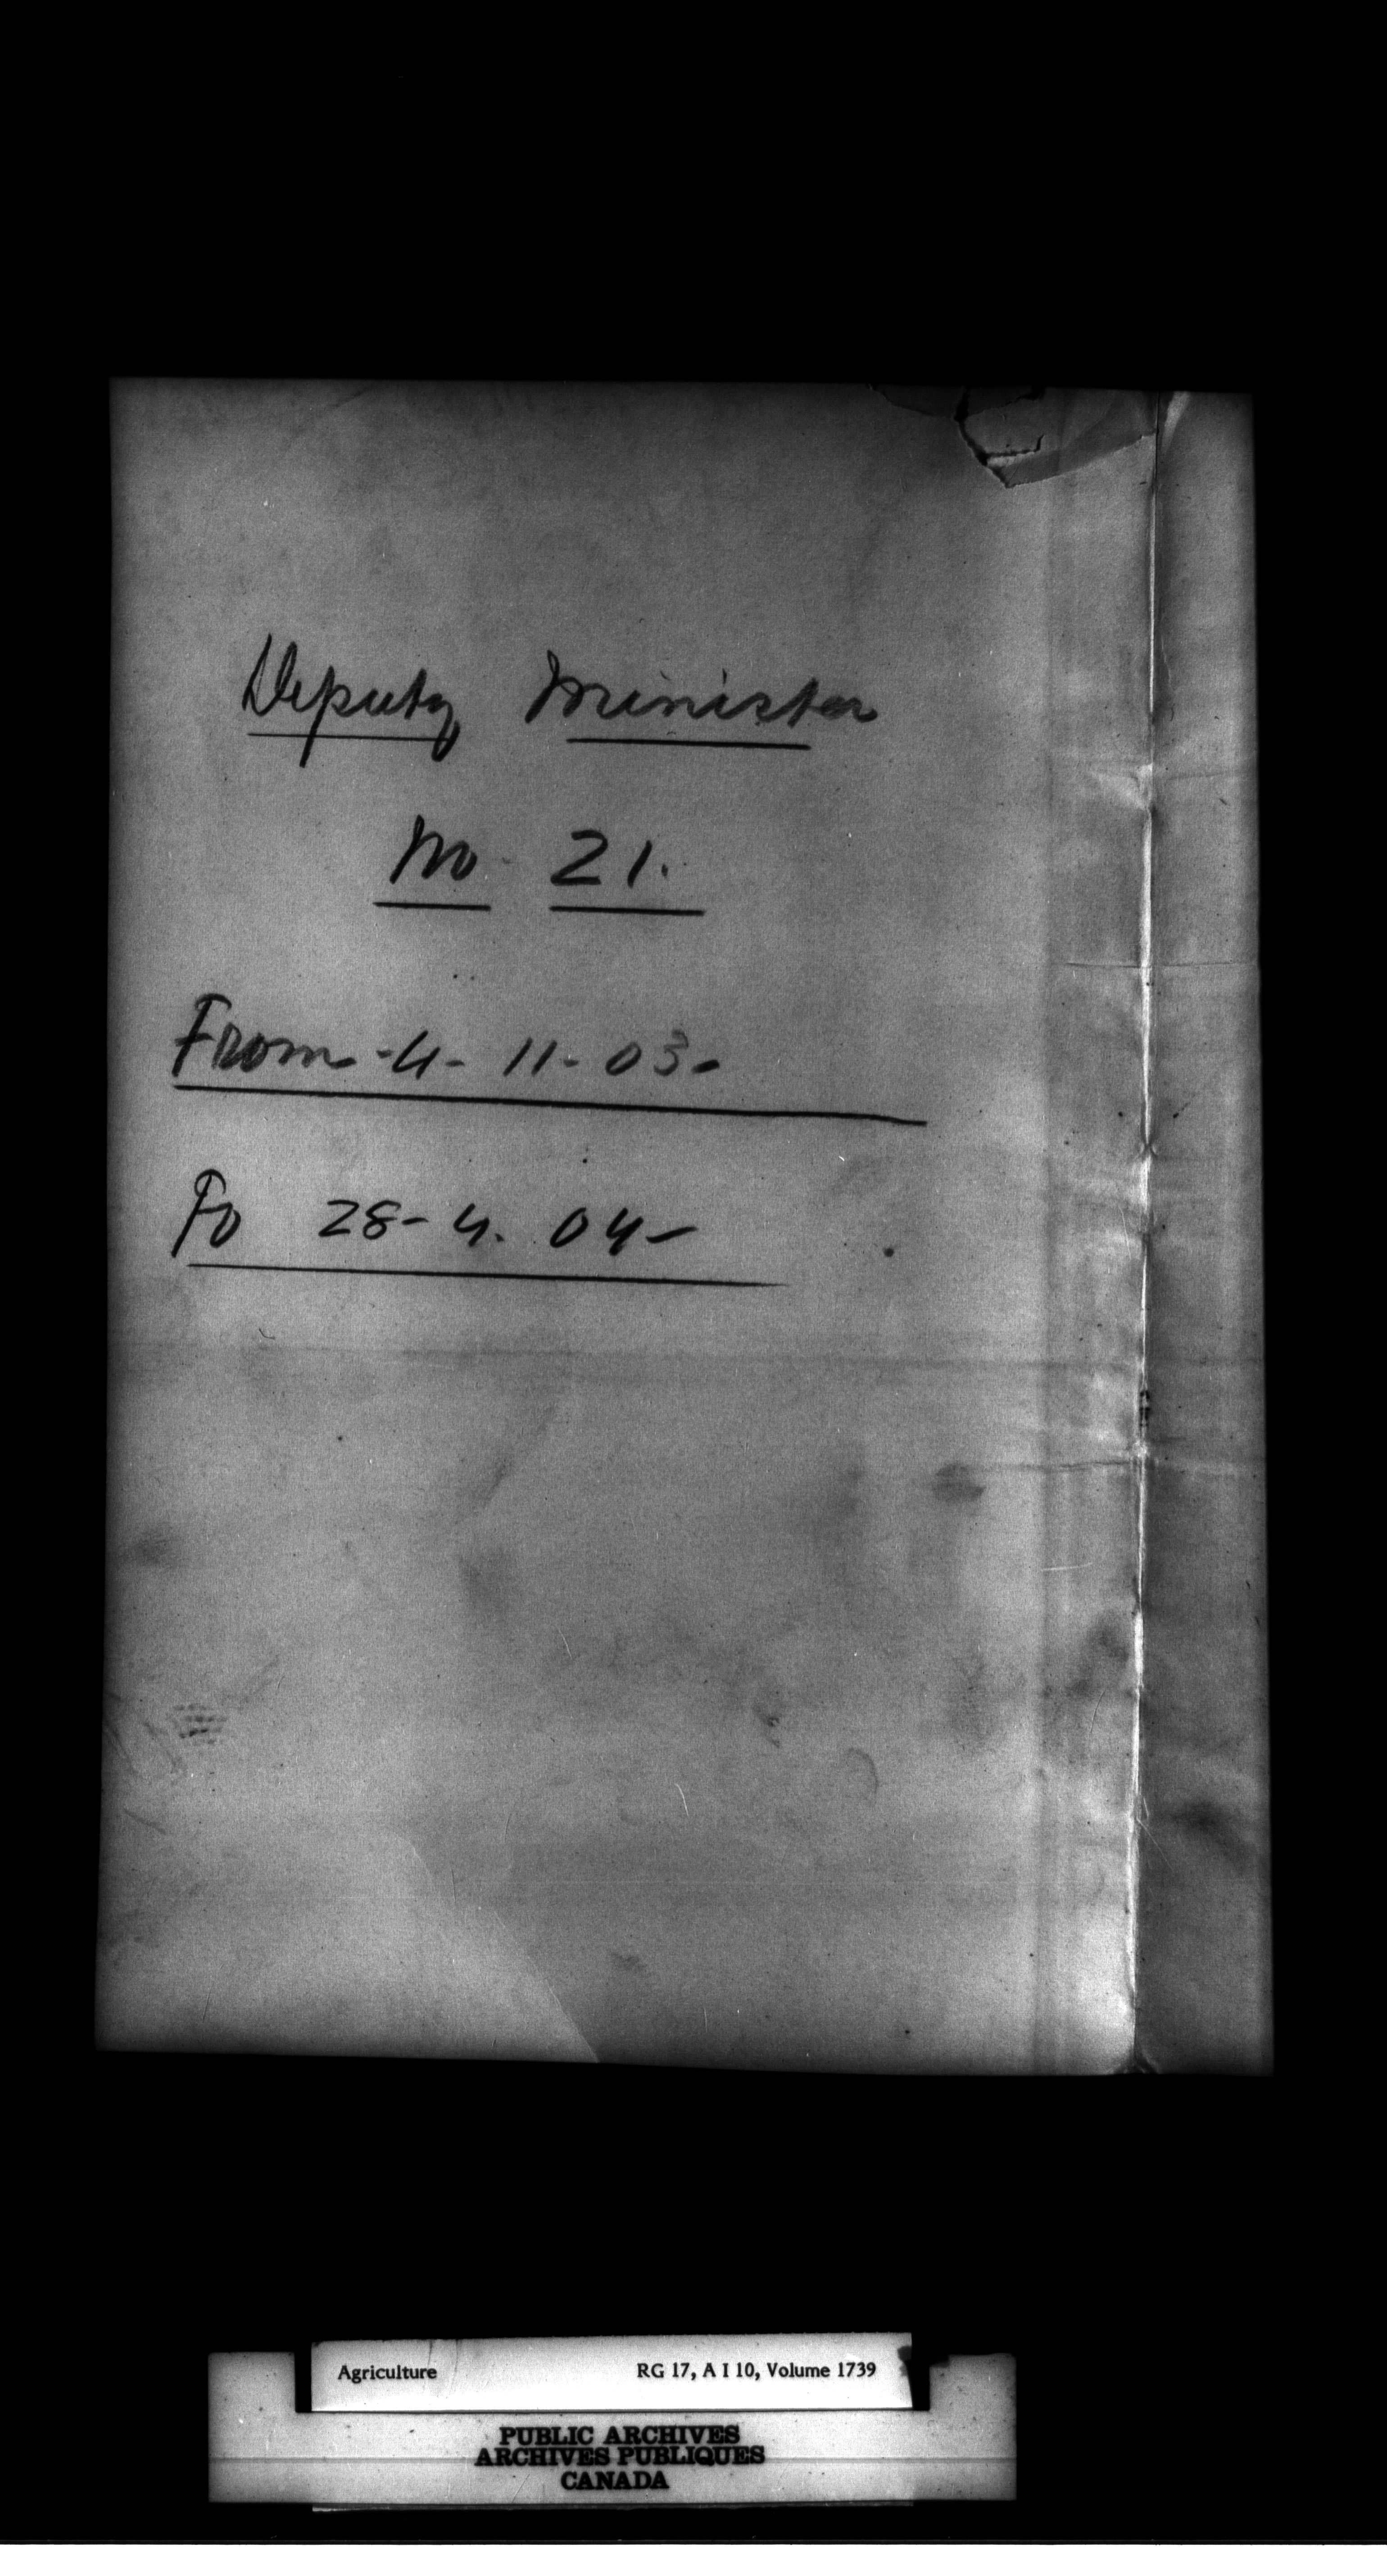 Deputy Minister
No 21.
From - 4 - 11 - 03 -
To 28 - 4. 04 -
Agriculture RG 17, A I 10, Volume 1739
PUBLIC ARCHIVES
ARCHIVES PUBLIQUES
CANADA